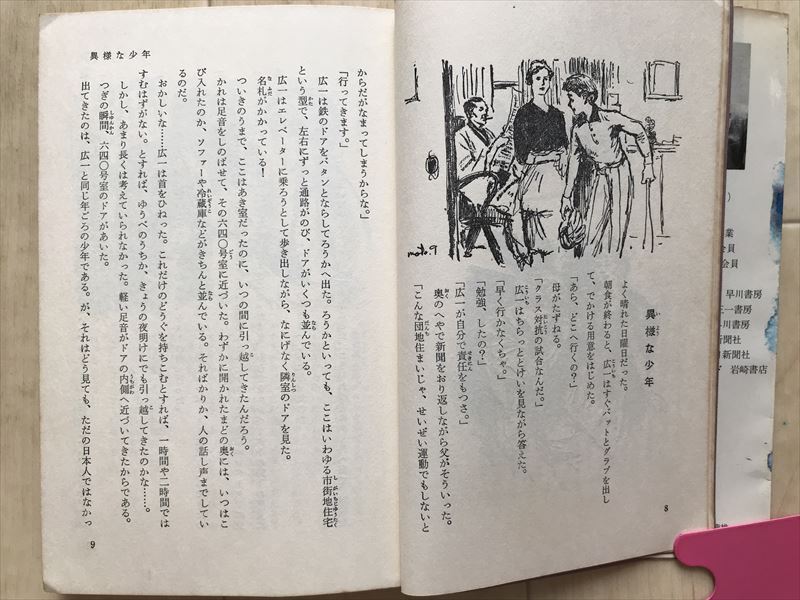 異様な少年
よく晴れた日曜日だった。
朝食が終わると、広一はすぐバットとグラブを出し
て、でかける用意をはじめた。
「あら、どこへ行くの？」
母がたずねる。
「クラス対抗の試合なんだ。」
広一はちらっととけいを見ながら答えた。
「早く行かなくちゃ。」
「勉強、したの？」
「広一が自分で責任をもつさ。」
奥のへやで新聞をおり返しながら父がそういった。
「こんな団地住まいじゃ、せいぜい運動でもしないと
moto.9
8
からだがなまってしまうからな。」
「行ってきます。」
広一は鉄のドアをバタンとならしてろうかへ出た。ろうかといっても、ここはいわゆる市街地住宅
という型で、左右にずっと通路がのび、ドアがいくつも並んでいる。
広一はエレベーターに乗ろうとして歩き出しながら、なにげなく隣室のドアを見た。
名札がかかっている！
ついきのうまで、ここはあき室だったのに、いつの間に引っ越してきたんだろう。
かれは足音をしのばせて、その六四〇号室に近づいた。わずかに開かれたまどの奥には、いつはこ
び入れたのか、ソファーや冷蔵庫などがきちんと並んでいる。そればかりか、人の話し声までしてい
るのだ。
おかしいな……広一は首をひねった。これだけのどうぐを持ちこむとすれば、一時間や二時間では
すむはずがない。とすれば、ゆうべのうちか、きょうの夜明けにでも引っ越してきたのかな……。
しかし、あまり長くは考えていられなかった。軽い足音がドアの内側へ近づいてきたからである。
つぎの瞬間、六四〇号室のドアがあいた。
出てきたのは、広一と同じ年ごろの少年である。が、それはどう見ても、ただの日本人ではなかっ
異様な少年
9
業
会員
会員
早川書房
三一書房
川書房
聞社
新聞社
岩崎書店